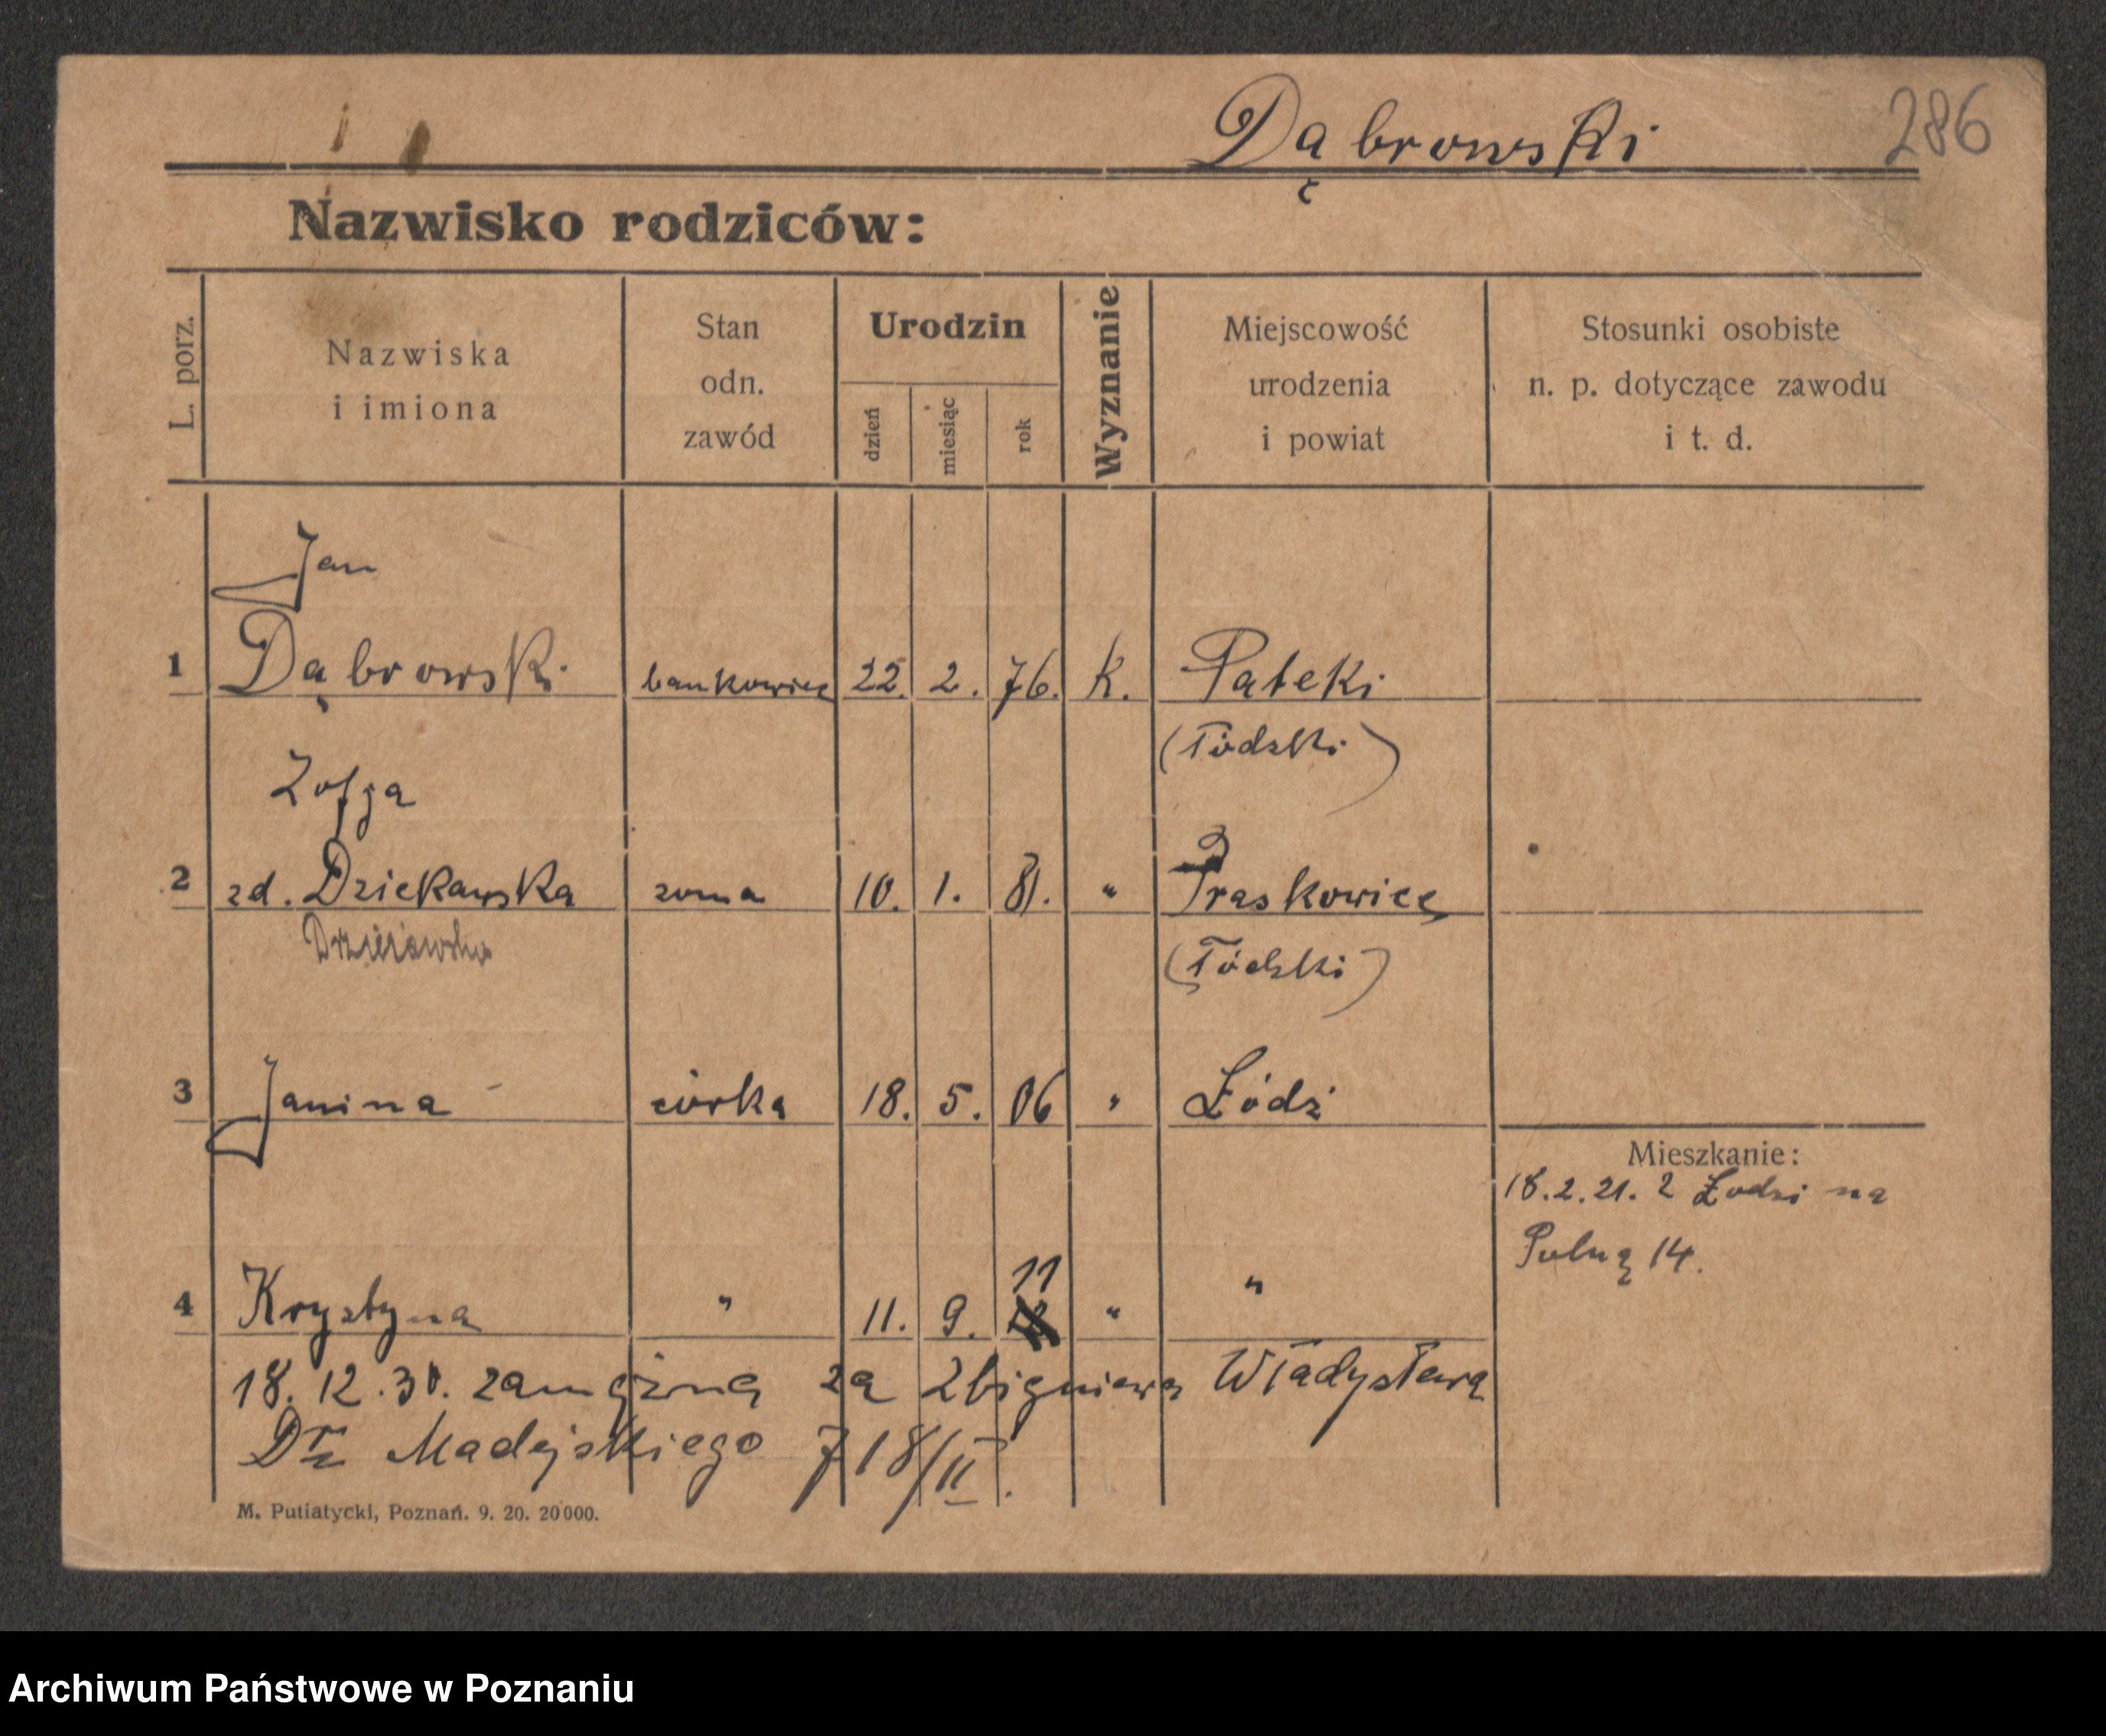 Dąbrowski 286
Nazwisko rodziców:
L. porz. Nazwiska i imiona Stan odn. zawód Urodzin dzień miesiąc rok Wyznanie Miejscowość urodzenia i powiat Stosunki osobiste n. p. dotyczące zawodu i t. d.
Jan
1 Dąbrowski bankowiec 22. 2. 76. K. Pateki
(Łódzki)
Zofja
2 zd. Dziekawska żona 10. 1. 81. " Praskowice
(Łódzki)
3 Janina córka 18. 5. 06 " Łódź
Mieszkanie:
18.2.21. z Łodzi na
Polną 14.
11
4 Krystyna " 11. 9. " "
18. 12. 30. zamężna za Zbigniewa Władysława
Dr Madejskiego 718/II.
M. Putiatycki, Poznań. 9. 20. 20000.
Archiwum Państwowe w Poznaniu